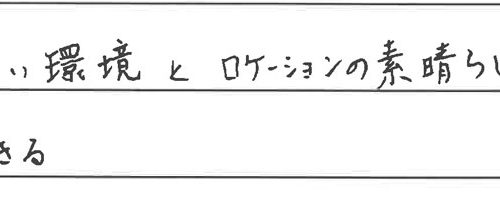 い環境とロケーションの素晴らし
きる